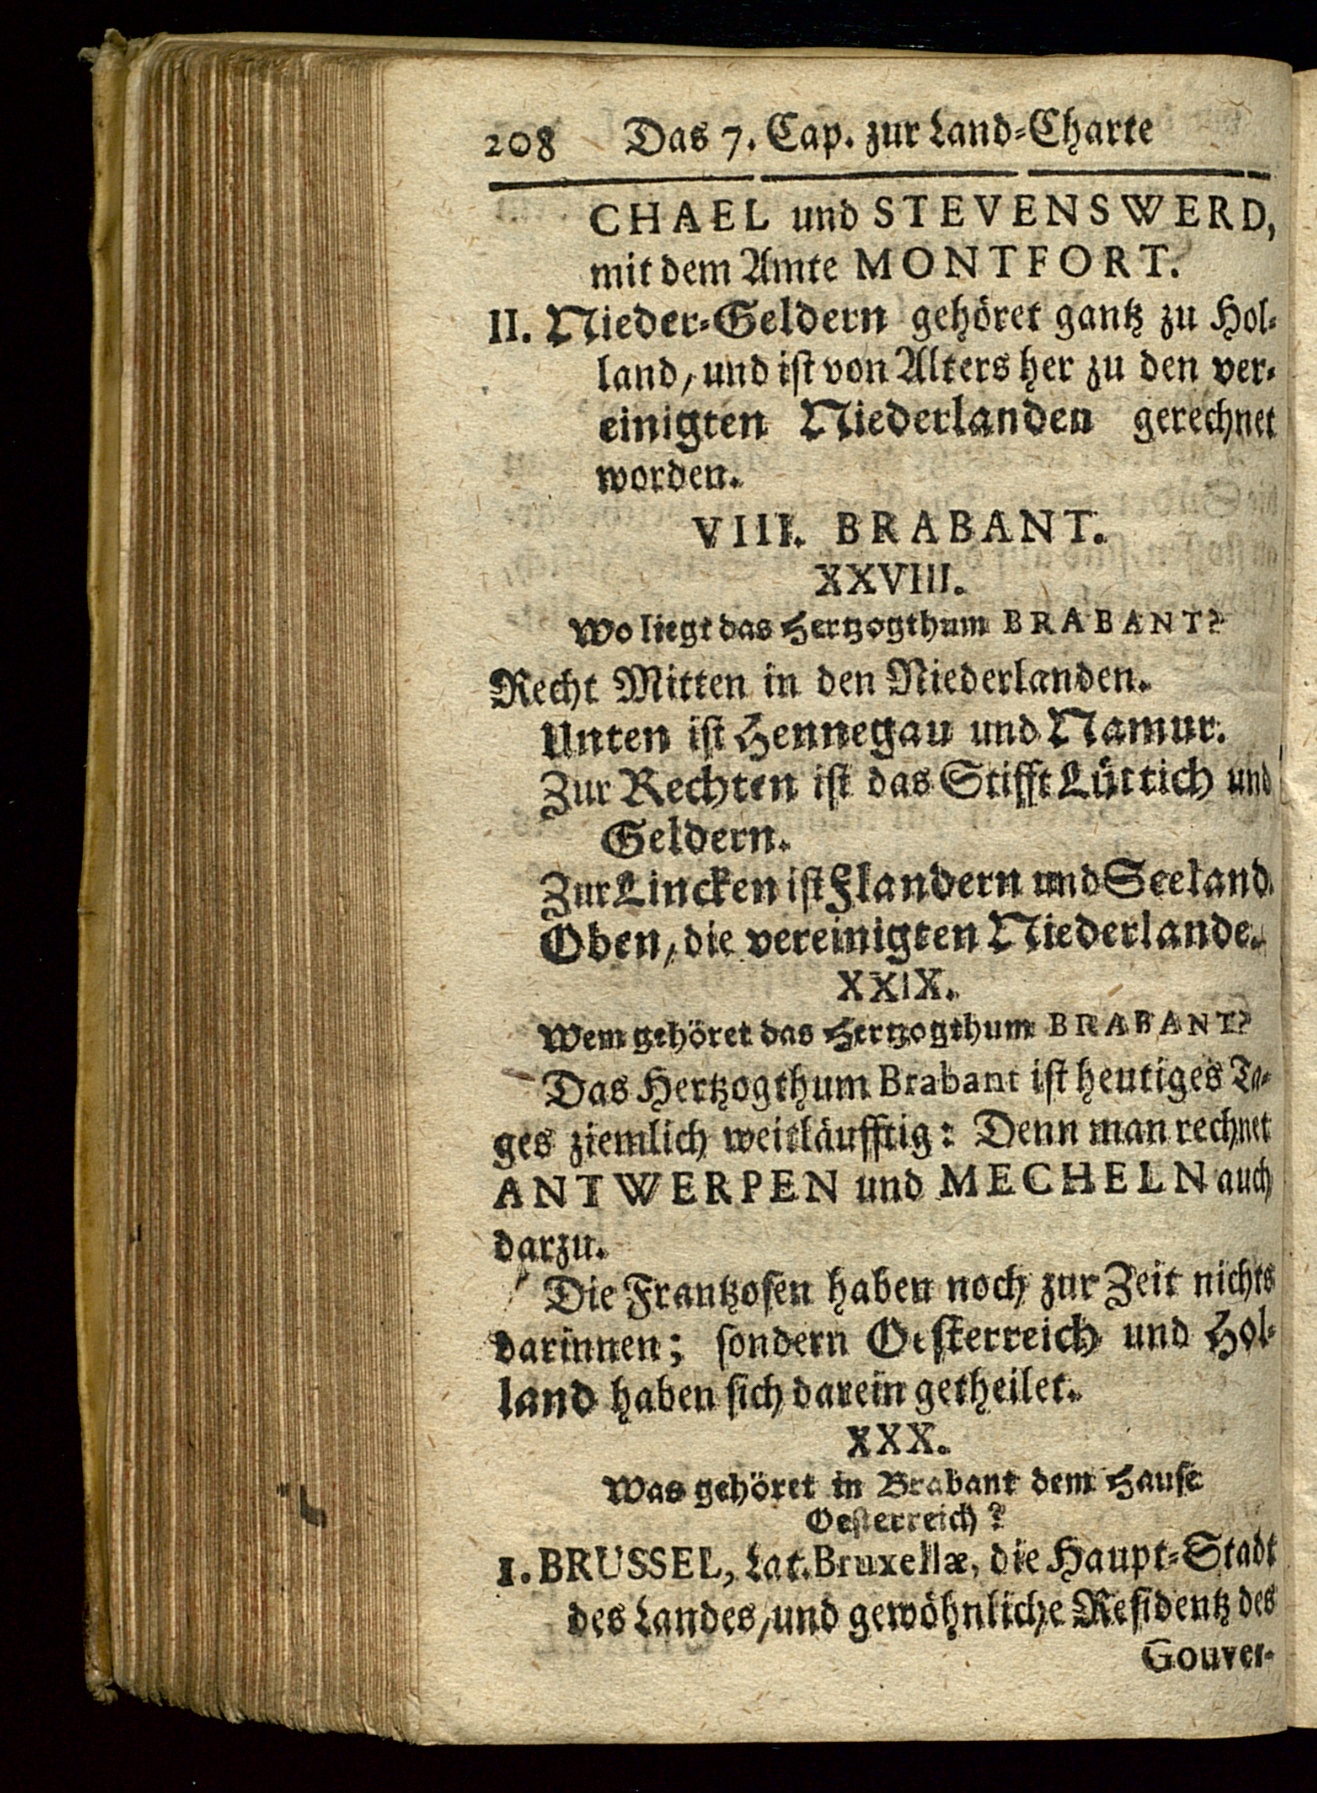 208 Das 7. Cap. zur Land-Charte
CHAEL und STEVENSWERD,
mit dem Amte MONTFORT.
II. Nieder-Geldern gehöret gantz zu Hol-
land, und ist von Alters her zu den ver-
einigten Niederlanden gerechnet
worden.
VIII. BRABANT.
XXVIII.
Wo liegt das Hertzogthum BRABANT?
Recht Mitten in den Niederlanden.
Unten ist Hennegau und Namur.
Zur Rechten ist das Stifft Lüttich und
Geldern.
Zur Lincken ist Flandern und Seeland.
Oben, die vereinigten Niederlande.
XXIX.
Wem gehöret das Hertzogthum BRABANT?
Das Hertzogthum Brabant ist heutiges Ta-
ges ziemlich weitläufftig: Denn man rechnet
ANTWERPEN und MECHELN auch
darzu.
Die Frantzosen haben noch zur Zeit nichts
darinnen; sondern Oesterreich und Hol-
land haben sich darein getheilet.
XXX.
Was gehöret in Brabant dem Hause
Oesterreich?
1. BRUSSEL, Lat. Bruxellæ, die Haupt-Stadt
des Landes, und gewöhnliche Residentz des
Gouver-